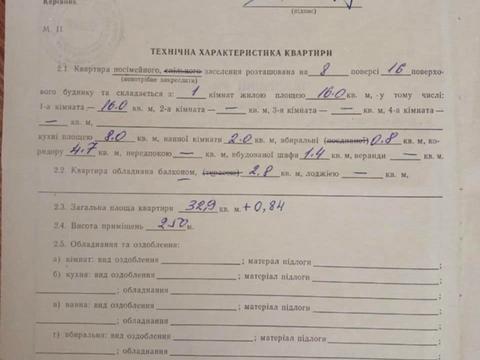 Керівник
(підпис)
М. П
ТЕХНІЧНА ХАРАКТЕРИСТИКА КВАРТИРИ
2.1. Квартира посімейного, спільного заселення розташована на 8 поверсі 16 поверхо-
(непотрібне закреслити)
вого будинку та складається з: 1 кімнат жилою площею 16.0 кв. м, у тому числі:
1-а кімната — 16.0 кв. м, 2-а кімната — — кв. м, 3-я кімната — — кв. м, 4-а кімната —
— кв. м,
кухні площею 8.0 кв. м, ванної кімнати 2.0 кв. м, вбиральні (поєднаної) 0.8 кв. м, ко-
ридору 4.7 кв. м, передпокою — кв. м, вбудованої шафи 1.4 кв. м, веранди — кв. м.
2.2. Квартира обладнана балконом, (терасою) 2.8 кв. м, лоджією — кв. м,
2.3. Загальна площа квартири 32,9 кв. м. + 0,84
2.4. Висота приміщень 250 м.
2.5. Обладнання та оздоблення:
а) кімнат: вид оздоблення ; матерал підлоги ;
б) кухня: вид оздоблення ; матеріал підлоги
; обладнання ;
в) ванна: вид оздоблення ; матеріал підлоги
; обладнання ;
г) вбиральня: вид оздоблення ; матеріал підлоги
; обладнання